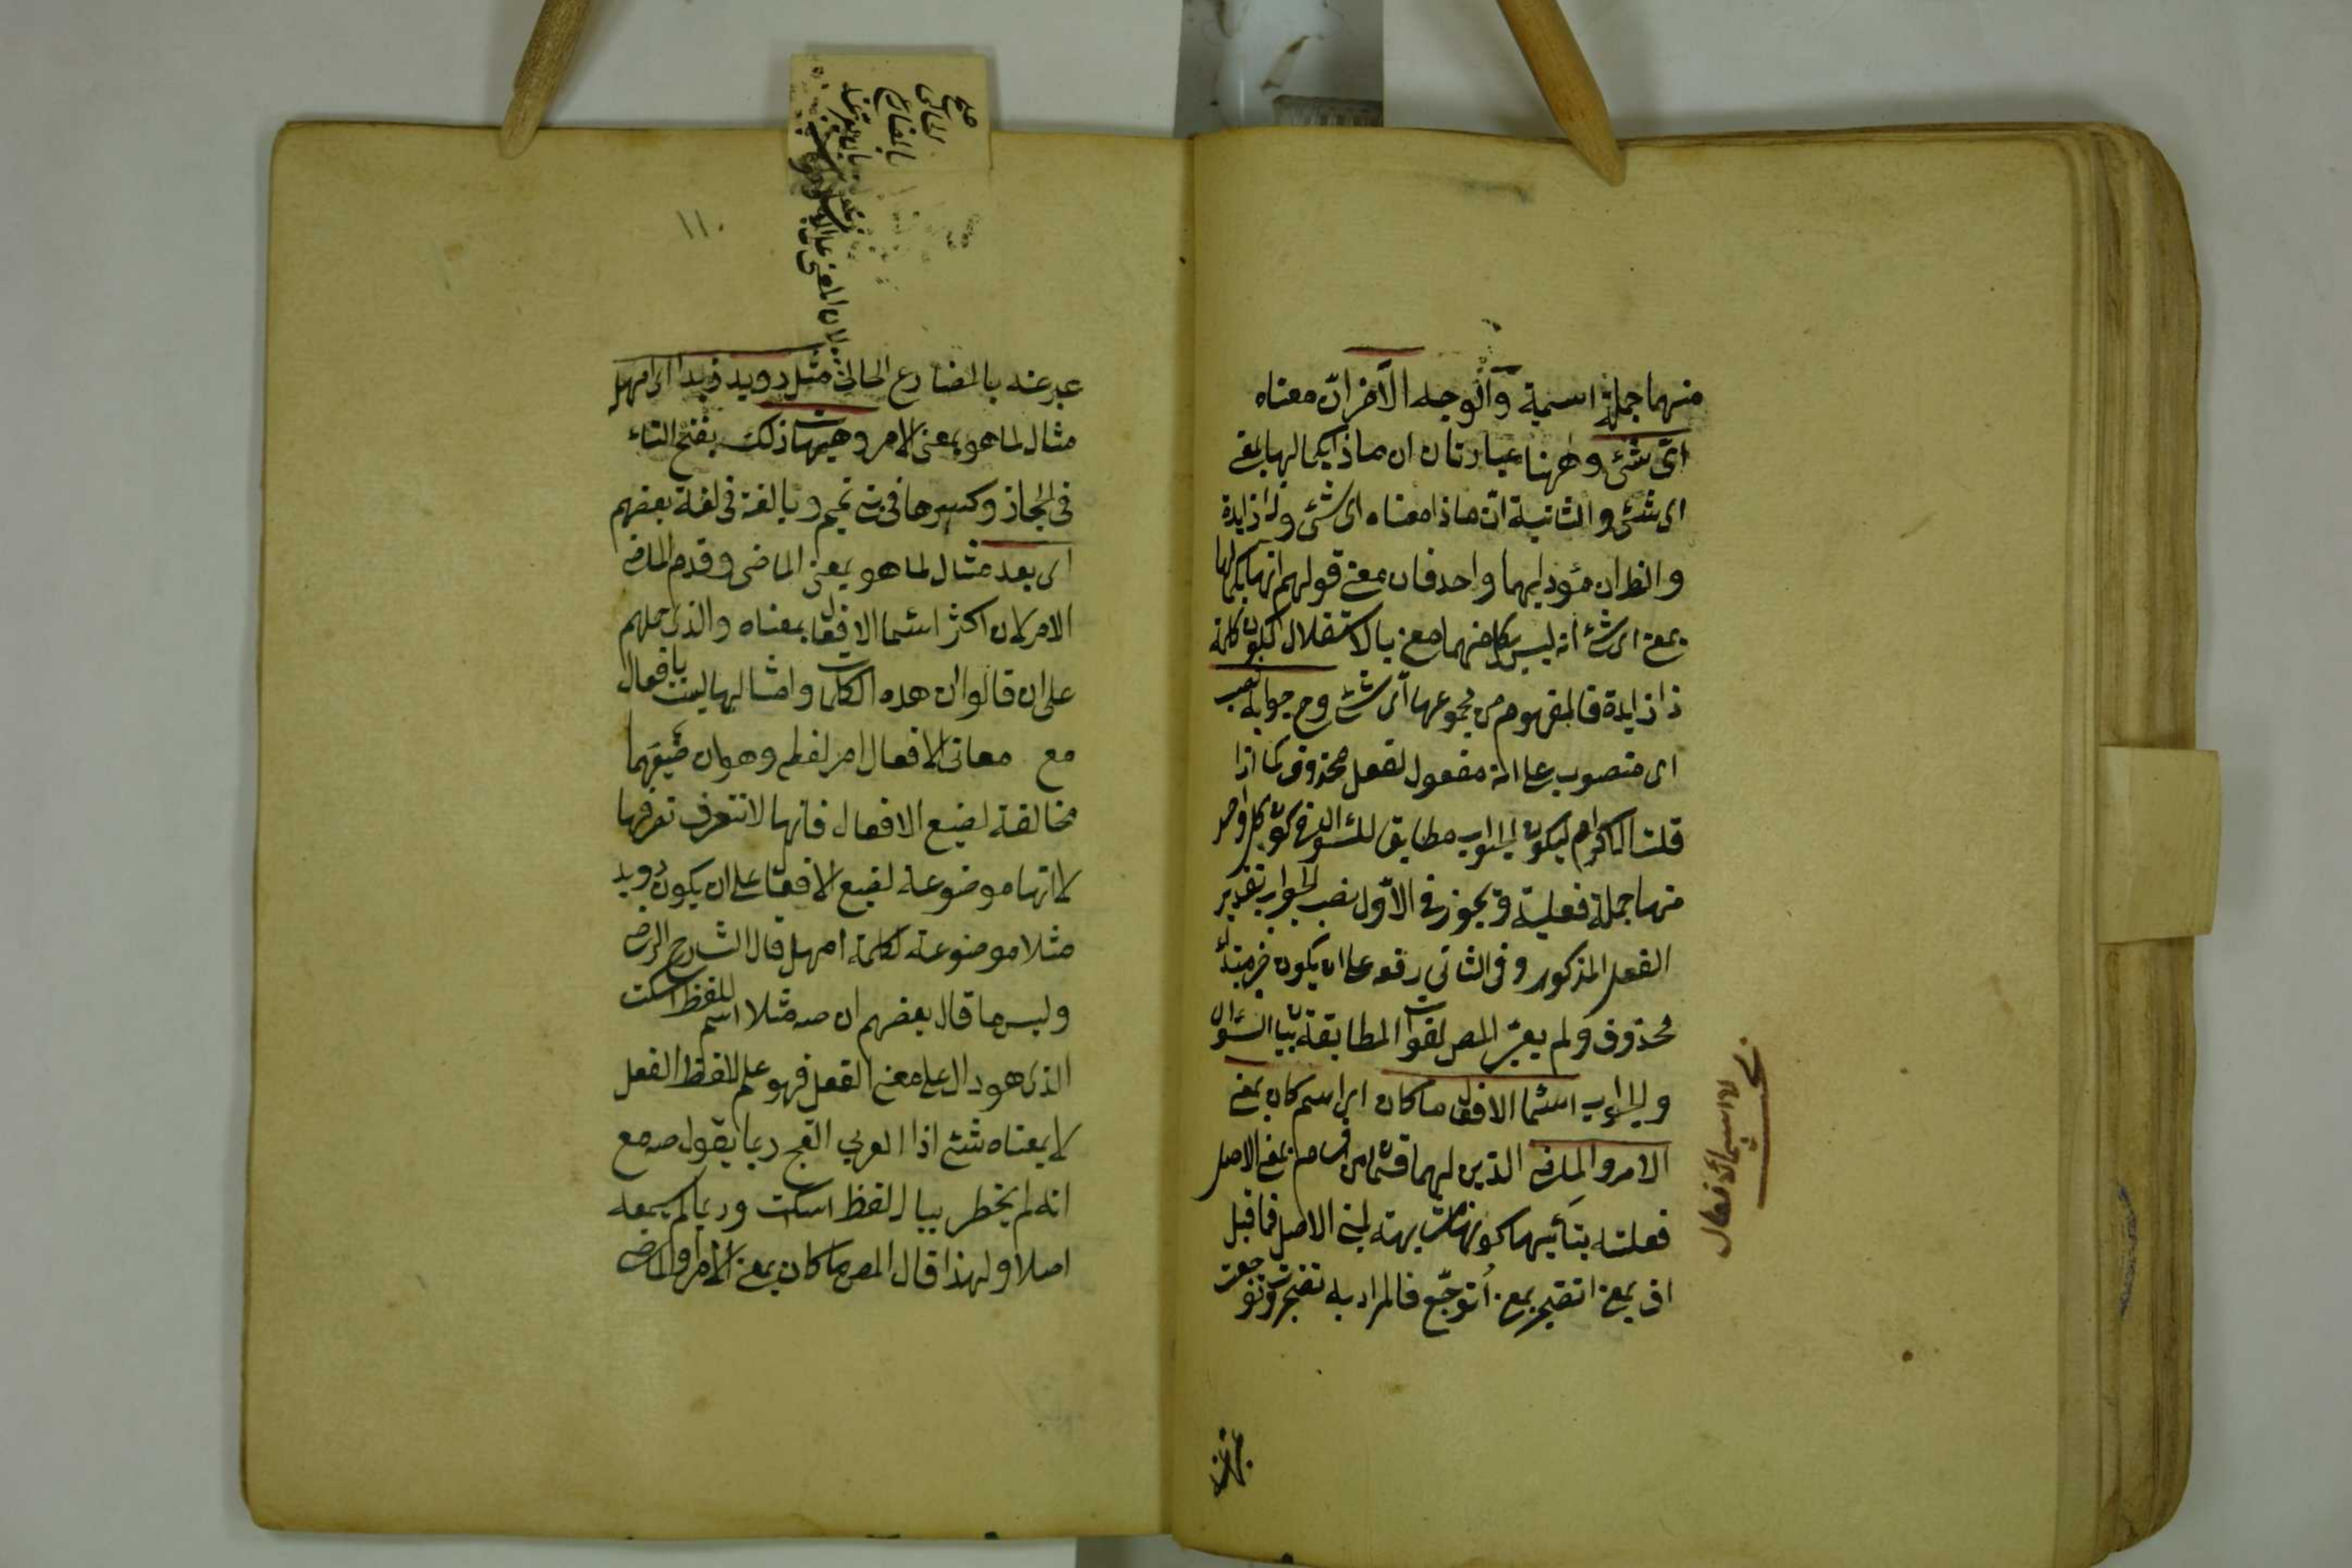 منهما جملة اسمية والوجه الآخر ان معناه
اى شئ وههنا عبارتان ان ماذا بكمالها بمعنى
اى شئ والثانية ان ماذا معناه اى شئ وذا زايدة
والظ ان مؤداهما واحد فان معنى قولهم انها بكمالها
بمعنى اى شئ انه ليس لكل منهما معنى بالاستقلال لكون كلمة
ذا زايدة فالمفهوم من مجموعها اى شئ وح جوابه نصب
اى منصوب على انه مفعول لفعل محذوف كما اذا
قلت الاكرام ليكون الجواب مطابق للسؤال فى كون كل واحد
منهما جملة فعلية ويجوز فى الاول نصب الجواب بتقدير
الفعل المذكور وفى الثانى رفعه على ان يكون خبر مبتدأ
محذوف ولم يعتبر المص لفوات المطابقة بين السؤال
والجواب اسماء الافعال ما كان اى اسم كان بمعنى
الامر والماضى الذين هما قسمان من اقسام مبنى الاصل
فعلته بنائها كونها مشابهة لمبنى الاصل فما قيل
اف بمعنى اتضجر بمعنى اتوجع فالمراد به تضجرت وتوجعت
الاسماء الافعال
١١٠
صح
الحالى
بالمضارع
لان المعنى على
عبر عنه بالمضارع الحالى مثل رويد زيدا اى امهل
مثال لما هو بمعنى الامر وهيهات ذلك بفتح التاء
فى الحجاز وكسرها فى بنى تميم وبالضم فى لغة بعضهم
اى بعد مثال لما هو بمعنى الماضى وقدم الماضى
الامر لان اكثر اسماء الافعال بمعناه والذى حملهم
على ان قالوا ان هذه الكلمات وامثالها ليست بافعال
مع معانى الافعال امر لفظى وهو ان صيغها
مخالفة لصيغ الافعال فانها لا تتصرف تصرفها
لا انها موضوعة لصيغ الافعال على ان يكون رويد
مثلا موضوعة لكلمة امهل قال الشارح الرضى
وليس ما قال بعضهم ان صه مثلا اسم للفظ اسكت
الذى هو دال على معنى الفعل فهو علم للفظ الفعل
لا بمعناه شئ اذ العربى القح ربما يقول صه مع
انه لم يخطر ببال لفظ اسكت وربما لم يسمعه
اصلا ولهذا قال المص ما كان بمعنى الامر والماضى